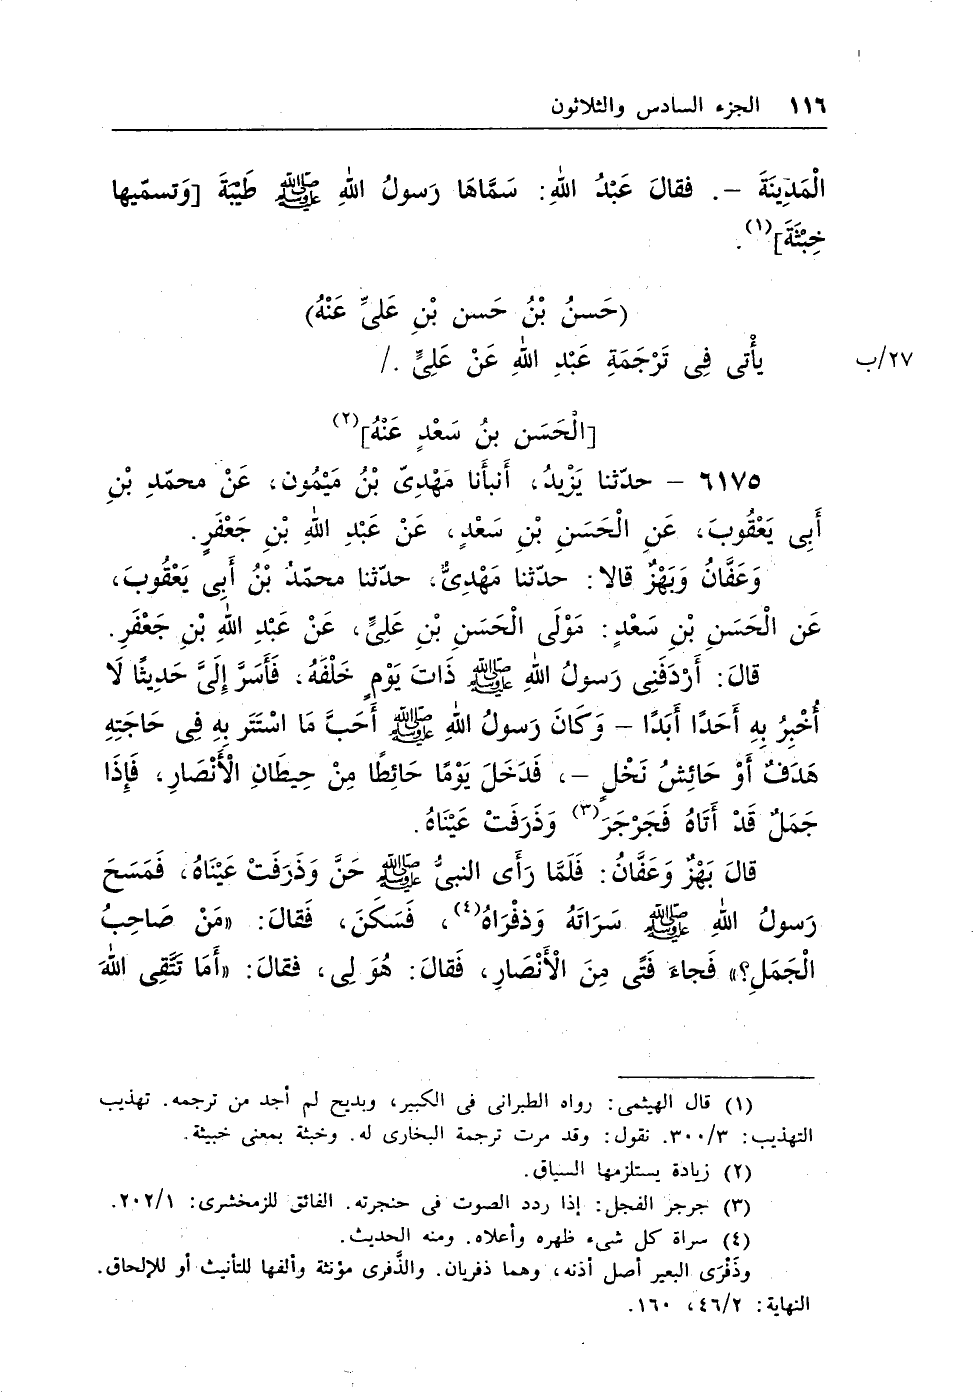 ١١٦ الجزء السادس والثلاثون
الْمَدِينَةَ –. فقالَ عَبْدُ اللهِ: سَمَّاهَا رَسولُ اللهِ ﷺ طَيْبَةَ [وَتسمّيها
خِبْثَةَ](١).
(حَسنُ بْنُ حَسن بْنِ عَلىٍّ عَنْهُ)
يأْتى فِى تَرْجَمَةِ عَبْدِ اللهِ عَنْ عَلِىٍّ ./
٢٧/ب
[الْحَسَن بنُ سَعْدٍ عَنْهُ](٢)
٦١٧٥ – حدّثنا يَزْيدُ، أَنبأَنا مَهْدِىّ بْنُ مَيْمُون، عَنْ محمّدِ بْنِ
أَبِى يَعْقُوبَ، عَنِ الْحَسَنِ بْنِ سَعْدٍ، عَنْ عَبْدِ اللهِ بْنِ جَعْفَرٍ.
وَعَفَّانُ وَبَهْزٌ قالا: حدّثنا مَهْدِىٌّ، حدّثنا محمّدُ بْنُ أَبى يَعْقُوبَ،
عَن الْحَسَنِ بْنِ سَعْدٍ: مَوْلَى الْحَسَنِ بْنِ عَلِىٍّ، عَنْ عَبْدِ اللهِ بْنِ جَعْفَرِ.
قالَ: أَرْدَفَنِى رَسولُ اللهِ ﷺ ذَاتَ يَوْمٍ خَلْفَهُ، فَأَسَرَّ إِلَىَّ حَدِيثًا لَا
أُخْبِرُ بِهِ أَحَدًا أَبَدًا – وَكَانَ رَسولُ اللهِ ﷺ أَحَبَّ مَا اسْتَتَر بِهِ فِى حَاجَتِهِ
هَدَفٌ أَوْ حَائِشُ نَخْلٍ –، فَدَخَلَ يَوْمًا حَائِطًا مِنْ حِيطَانِ الْأَنْصَارِ، فَإِذَا
جَمَلٌ قَدْ أَتَاهُ فَجَرْجَرَ(٣) وَذَرَفَتْ عَيْنَاهُ.
قالَ بَهْزٌ وَعَفَّانُ: فَلَمَّا رَأَى النبىُّ ﷺ حَنَّ وَذَرفَتْ عَيْنَاهُ، فَمَسَحَ
رَسولُ اللهِ ﷺ سَرَاتَهُ وَذفْرَاهُ(٤)، فَسَكَنَ، فَقالَ: «مَنْ صَاحِبُ
الْجَمَلِ؟» فَجاءَ فَتًى مِنَ الْأَنْصَارِ، فَقالَ: هُوَ لِى، فقالَ: «أَمَا تَتَّقِى اللهَ
(١) قال الهيثمى: رواه الطبرانى فى الكبير، وبديح لم أجد من ترجمه. تهذيب
التهذيب: ٣٠٠/٣. نقول: وقد مرت ترجمة البخارى له. وخبثة بمعنى خبيثة.
(٢) زيادة يستلزمها السياق.
(٣) جرجر الفجل: إذا ردد الصوت فى حنجرته. الفائق للزمخشرى: ٢٠٢/١.
(٤) سراة كل شىء ظهره وأعلاه. ومنه الحديث.
وذَفْرَى البعير أصل أذنه، وهما ذفريان. والذَّفرى مؤنثة وألفها للتأنيث أو للإلحاق.
النهاية: ٤٦/٢، ١٦٠.